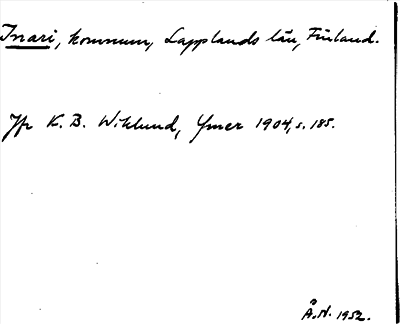 Inari, kommun, Lapplands län, Finland.
Jfr K. B. Wiklund, Ymer 1904, s. 185.
Å.H. 1952.